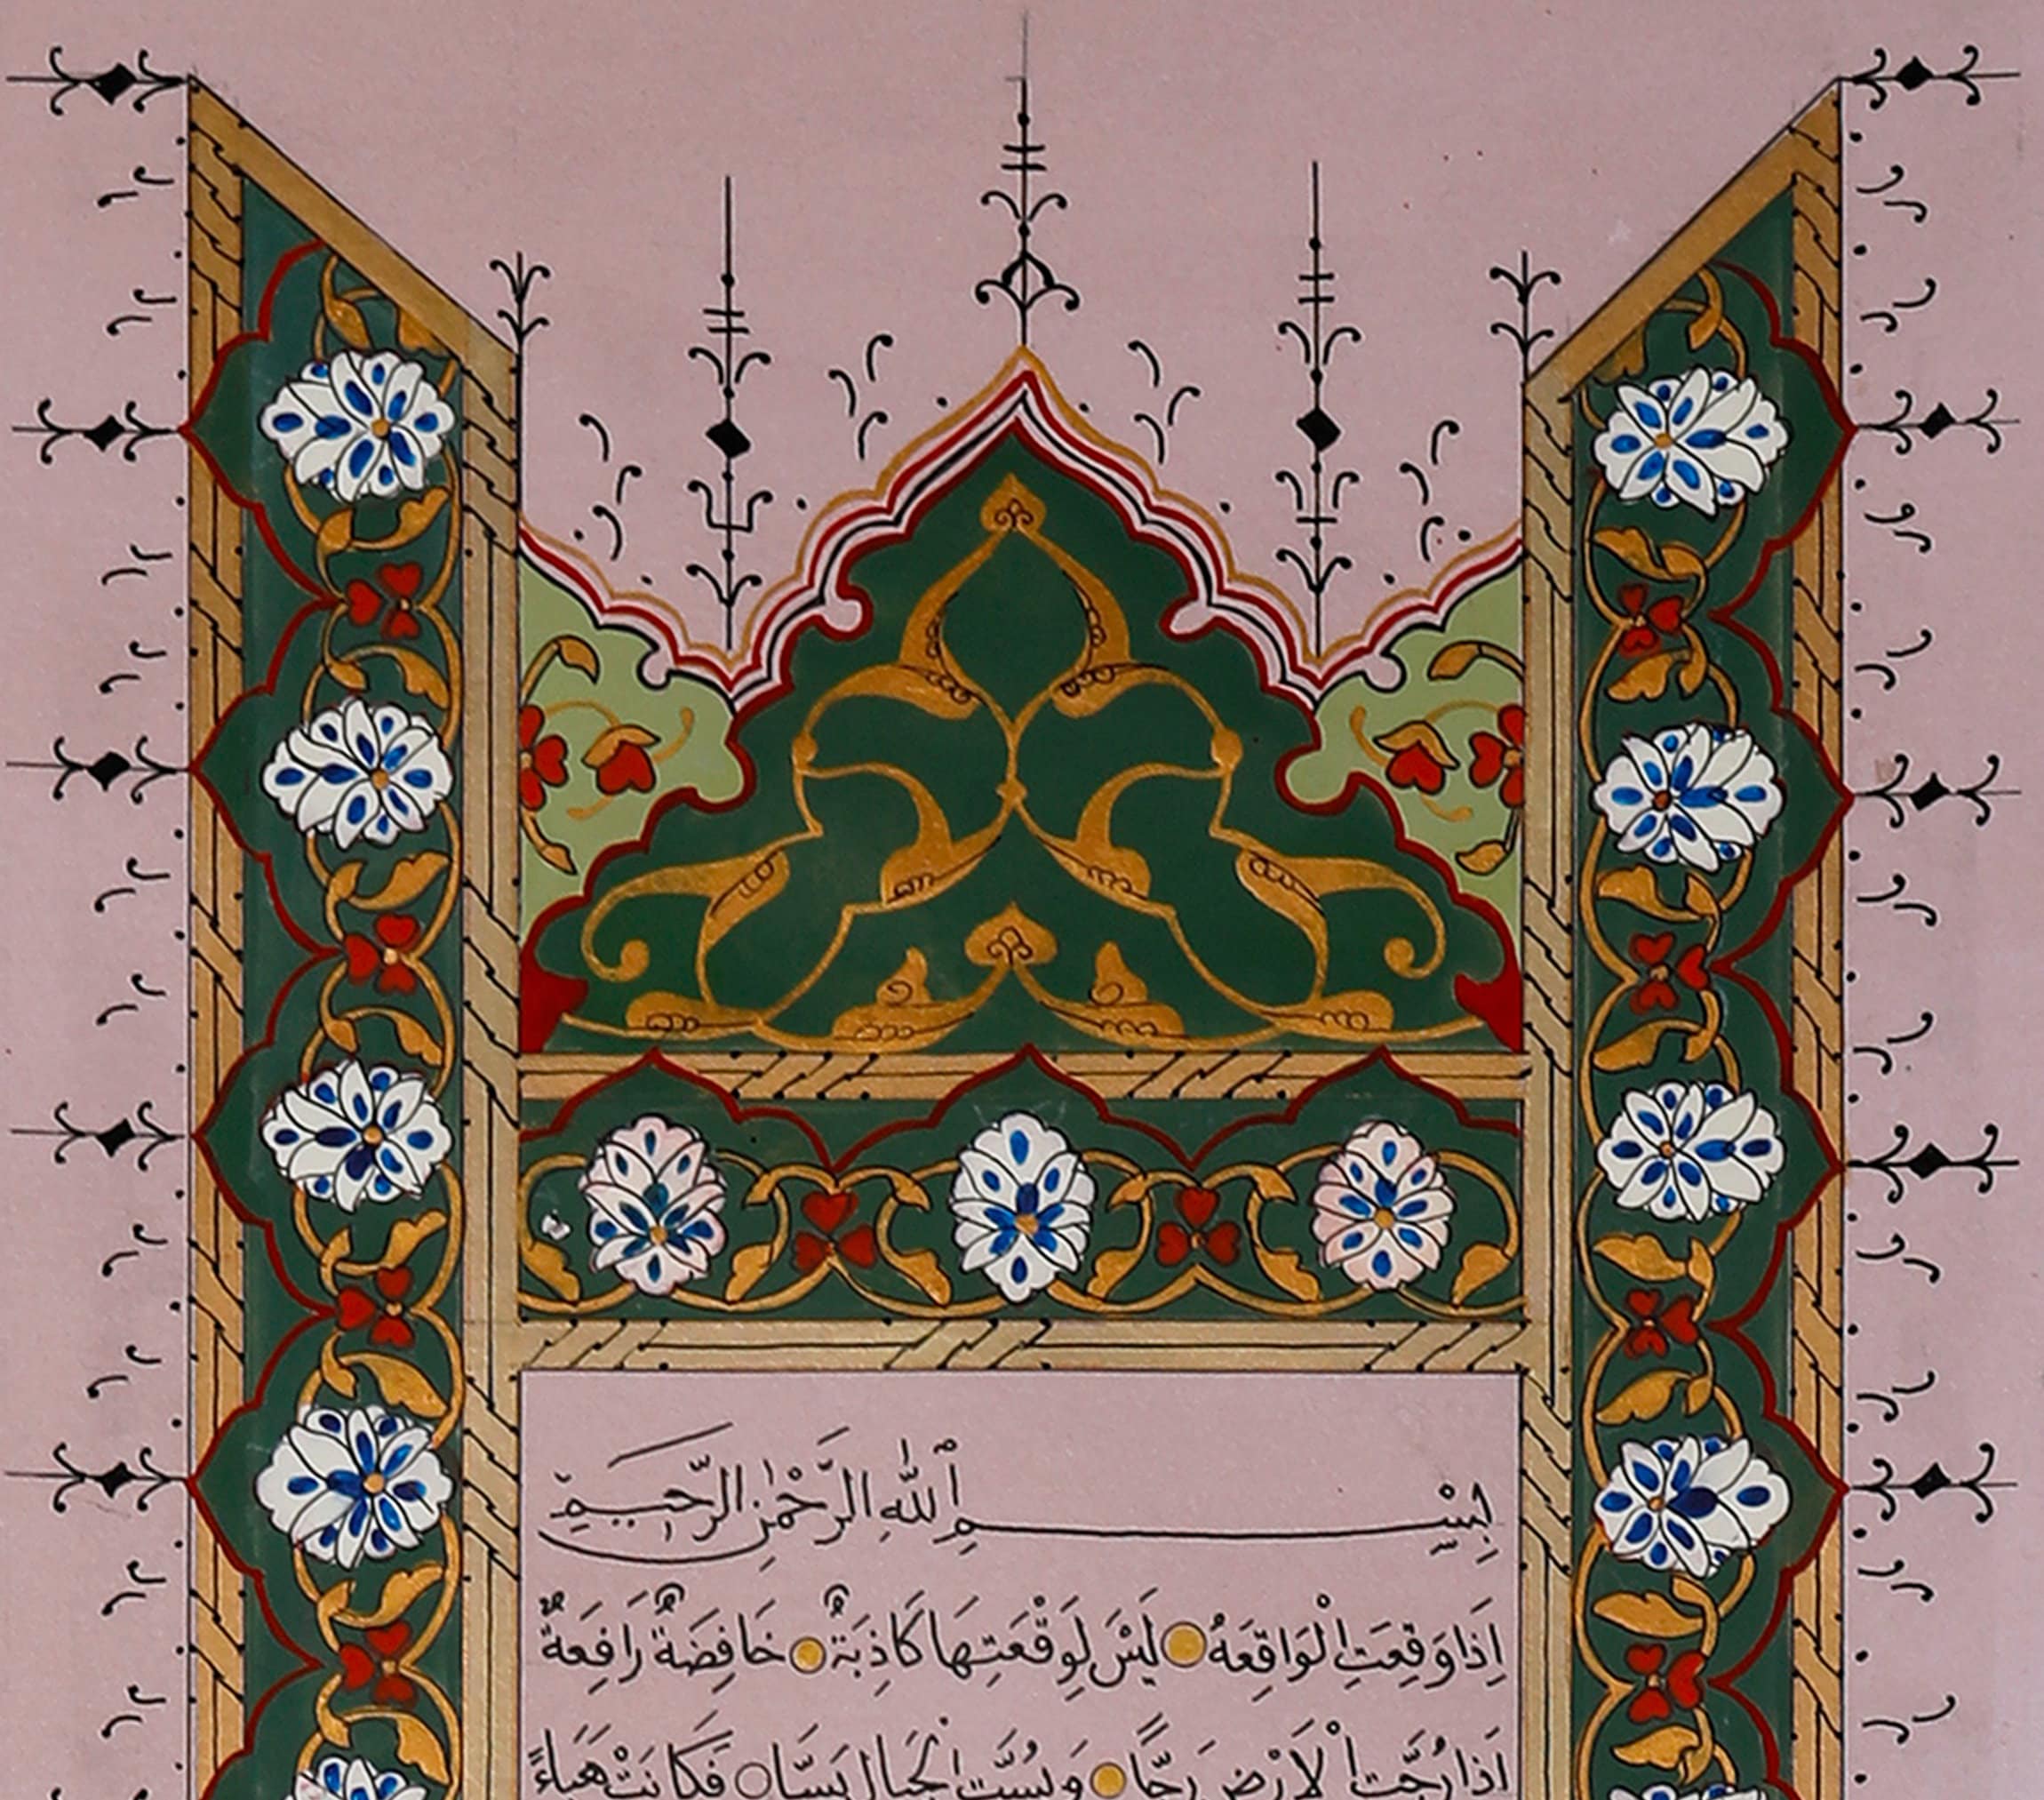 بِسْمِ اللّٰهِ الرَّحْمٰنِ الرَّحِيمِ
اِذَا وَقَعَتِ الْوَاقِعَةُ لَيْسَ لِوَقْعَتِهَا كَاذِبَةٌ خَافِضَةٌ رَافِعَةٌ
اِذَا رُجَّتِ الْاَرْضُ رَجًّا وَبُسَّتِ الْجِبَالُ بَسًّا فَكَانَتْ هَبَاءً